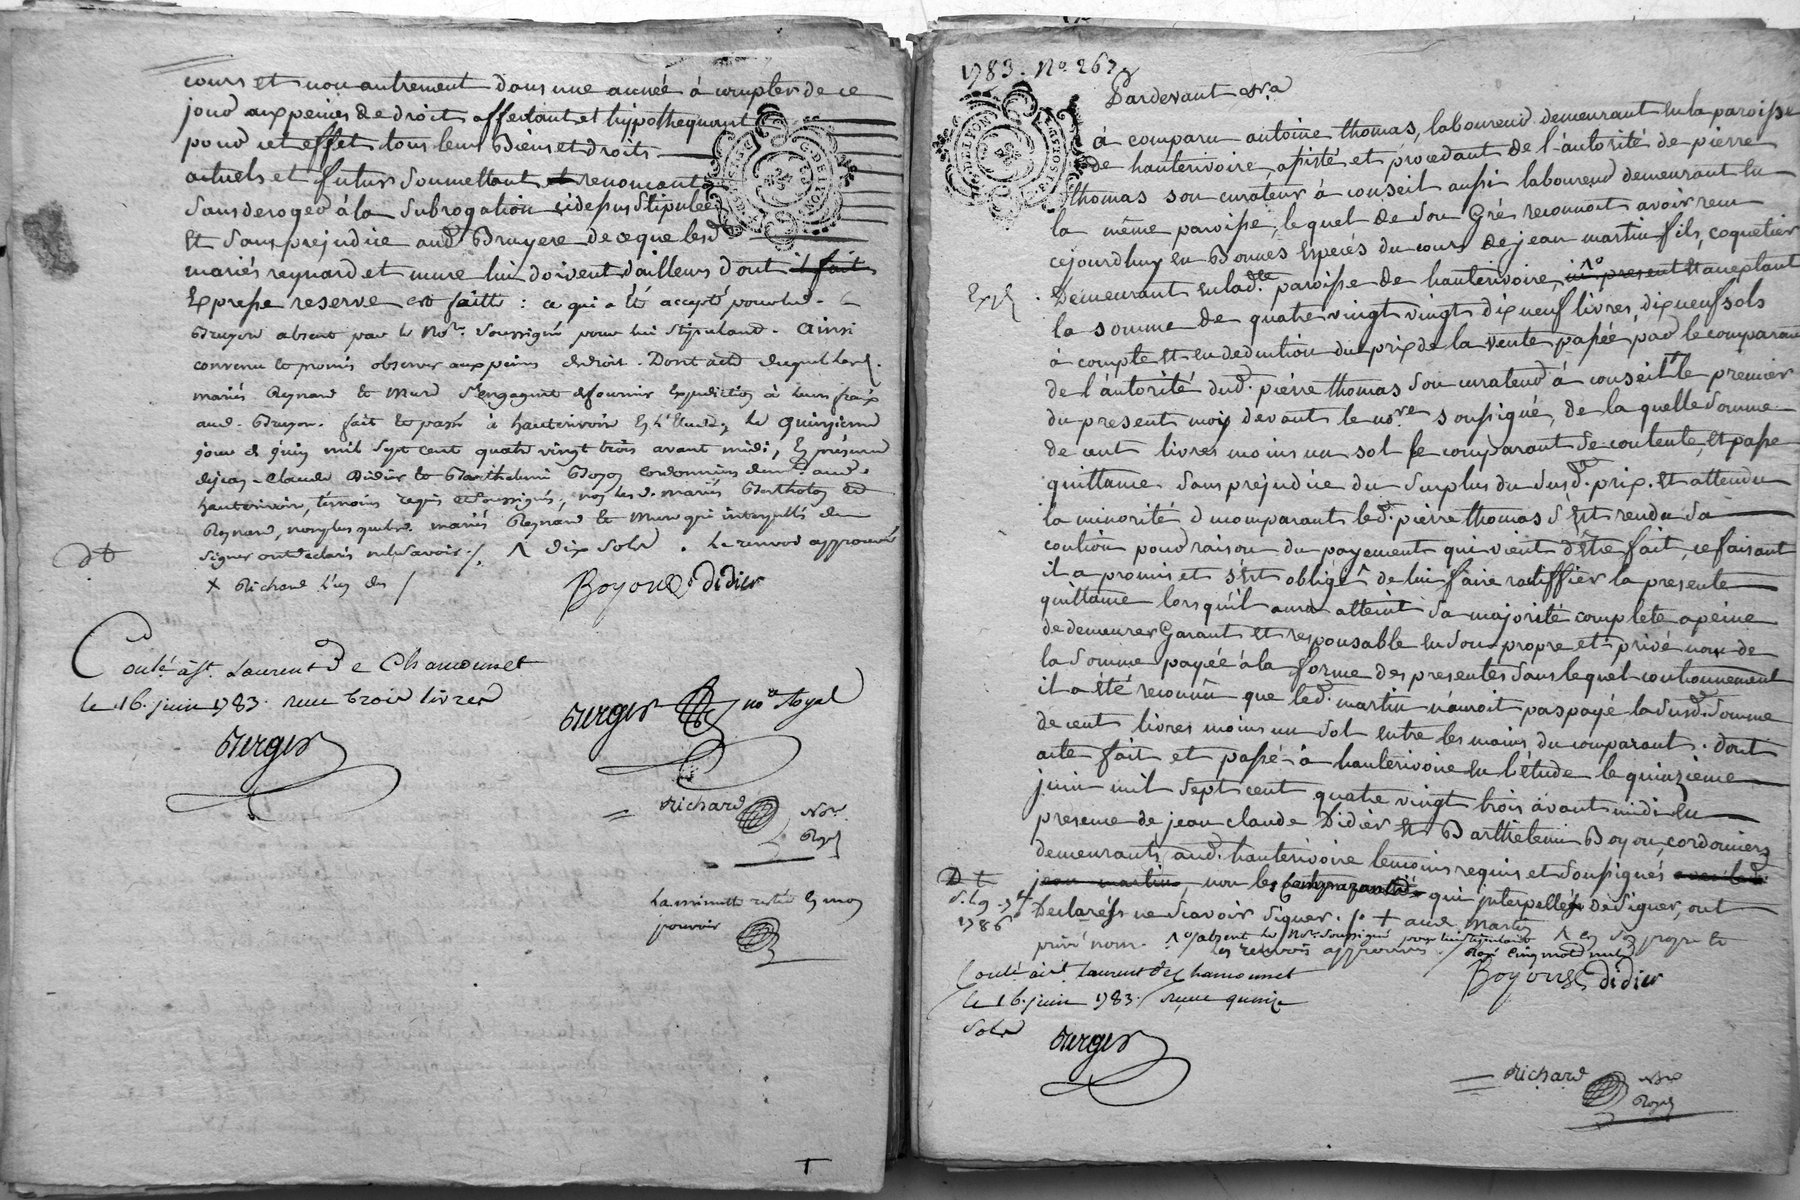 cours et non autrement dans une année à compter de ce
jour aux peines de droit affectant et hypothequant
pour cet effet tous leurs Biens et droits
actuels et futur soumettant et renoncant
Sans deroger à la subrogation cidessus Stipulée
Et Sans prejudice aud. Bruyere de ce que lesd
mariés reynard et mure lui doivent d'ailleurs dont il fait
Expresse reserve est faitte : ce qui a été accepté pour led.
Bruyere absent par le Nore. soussigné pour lui stipulant. ainsi
convenu et promis observer aux peines de droit. Dont acte duquel lesd.
mariés Reynard et Mure s'engagent de fournir Expedition à leurs fraix
aud. Bruyere. fait et passé à hauterivoire En l'Etude, le quinzieme
jour de juin mil sept cent quatre vingt trois avant midi, En présence
de jean-Claude Didier et Barthelemi Boyou cordonniers demt. aud.
hauterivoire, témoins requis et soussignés, non lesd. mariés
Reynard, non plus que lesd. mariés Reynard et Mure qui interpellés de
signer ont déclaré ne le savoir ./. ^ dix sols . Le renvoi approuvé
x Richard l'un des /
Boyou Didier
Conté. à St. Laurent De Chamousset
le 16. juin 1783. reçu trois livres
Verger
Verger nore Royal
= Richard Nore.
Royal
La minutte restée En mon
pouvoir
1783. No. 267
G. DE LYON
Pardevant &ra
à comparu antoine thomas, laboureur demeurant En la paroisse
de hauterivoire, assisté et procedant de l'autorité de pierre
thomas son curateur à conseil aussi laboureur demeurant En
la même paroisse, lequel de Son Gré reconnoit avoir reçu
cejourdhuy En Bonnes Especes du cours de jean martin fils, coquetier
Demeurant En lade. paroisse de hauterivoire, ^o present et acceptant
Exp.
la somme de quatre vingt vingt dix neuf livres, dix neuf sols
à compte Et en deduction du prix de la vente passée par le comparant
de l'autorité dud. pierre thomas Son curateur à conseil le premier
du present mois devant le nore soussigné, de la quelle Somme
de cent livres moins un sol le comparant Se contente, Et passe
quittance. Sans prejudice du Surplus du Susd. prix. Et attendu
la minorité du comparant led. pierre thomas S'Est rendu Sa
caution pour raison du payement qui vient d'Etre fait, ce faisant
il a promis et s'Est obligé ^ de lui faire ratiffier la presente
quittance lorsqu'il aura atteint Sa majorité complete a peine
de demeurer Garant Et responsable En Son propre et privé nom de
la Somme payée à la forme des presentes Sans lequel cautionnement
il a été reconnu que led. martin n'auroit pas payé la Susd. Somme
de cent livres moins un Sol Entre les mains du comparant. Dont
acte fait et passé à hauterivoire En l'étude le quinzieme
juin mil sept cent quatre vingt trois avant midi En
presence de jean claude Didier Et Barthelemi Boyou, cordonniers
demeurants aud. hauterivoire temoins requis et Soussignés
jean martin, non les comparants qui interpellés de Signer, ont
Declarés ne Scavoir Signer. /. + aud. Martin ^ En son propre et
1786
privé nom. ^o absent le Nore. soussigné pour lui stipulant
les renvois approuvés ./. Rayé cinq mots nuls
Boyou Didier
Conté. à St. Laurent de Chamousset
le 16. juin 1783. reçu quinze
Sols
Verger
= Richard Nore
Royal